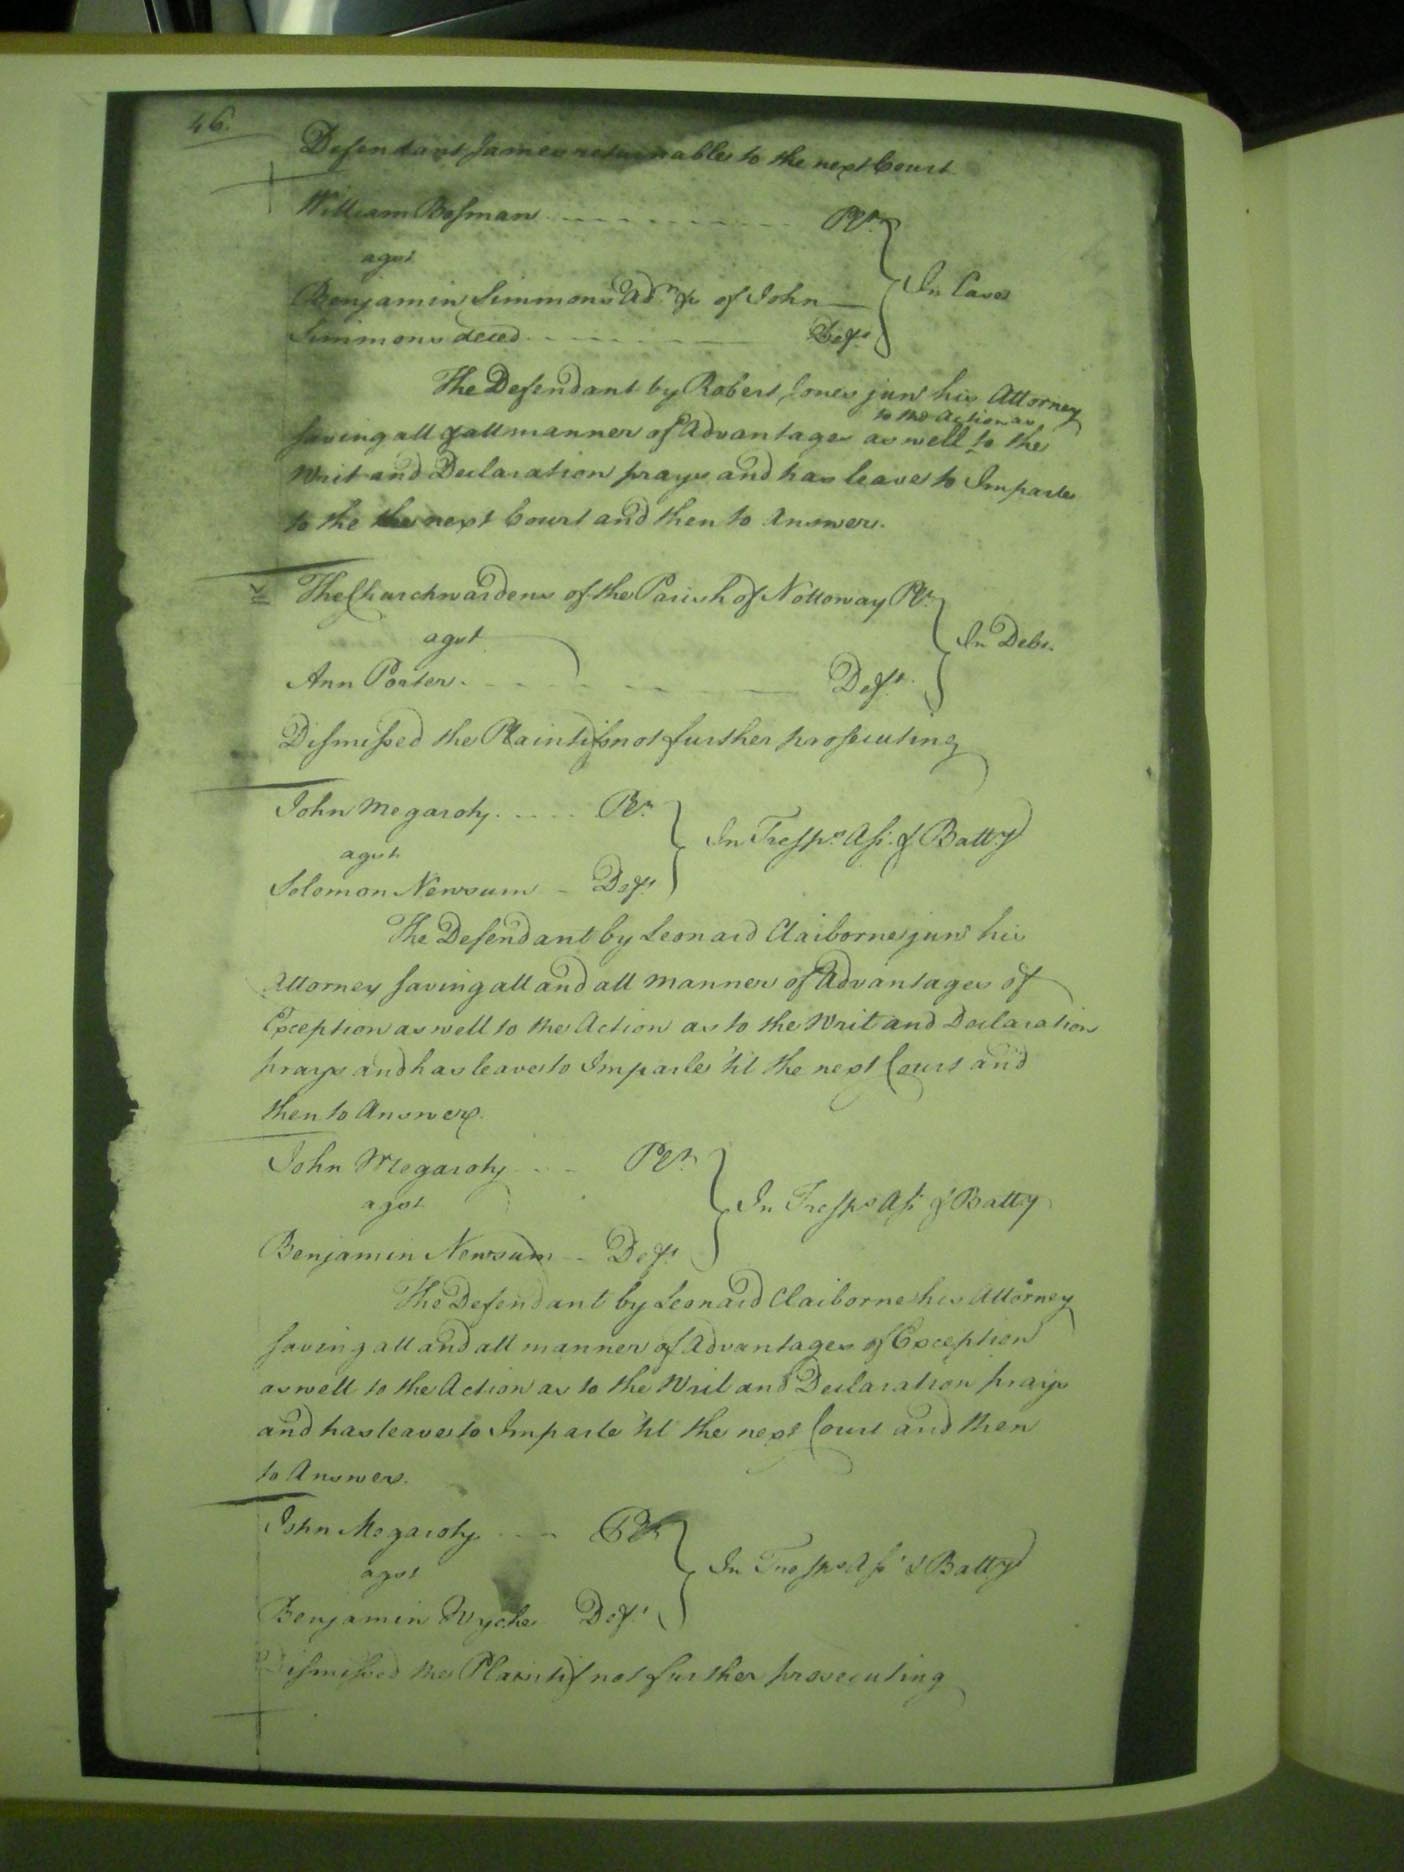 46.
Defendant James returnable to the next Court
William Bosman Plt.
agst
Benjamin Simmons Adm.r &c of John
Simmons deced Deft.
In Case
The Defendant by Robert Jones junr his Attorney
to the Action as
saving all & all manner of Advantages as well to the
Writ and Declaration prays and has leave to Imparle
to the the next Court and then to Answer.
The Churchwardens of the Parish of Nottoway Plt.
agst
In Debt.
Ann Porter. Deft.
Dismissed the Plaintifs not further prosecuting
John Megaroty. Plt.
agst
In Tresps. Asst. & Batty
Solomon Newsum Deft.
The Defendant by Leonard Claiborne junr his
Attorney saving all and all manner of Advantages of
Exception as well to the Action as to the Writ and Declaration
prays and has leave to Imparle 'til the next Court and
then to Answer.
John Megaroty Plt.
agst
In Tresps Asst & Batty
Benjamin Newsum Deft.
The Defendant by Leonard Claiborne his Attorney
saving all and all manner of Advantages of Exception
as well to the Action as to the Writ and Declaration prays
and has leave to Imparle 'til the next Court and then
to Answer.
John Megaroty Plt
agst
In Tresps Asst & Batty
Benjamin Wyche Deft.
Dismissed the Plaintif not further prosecuting